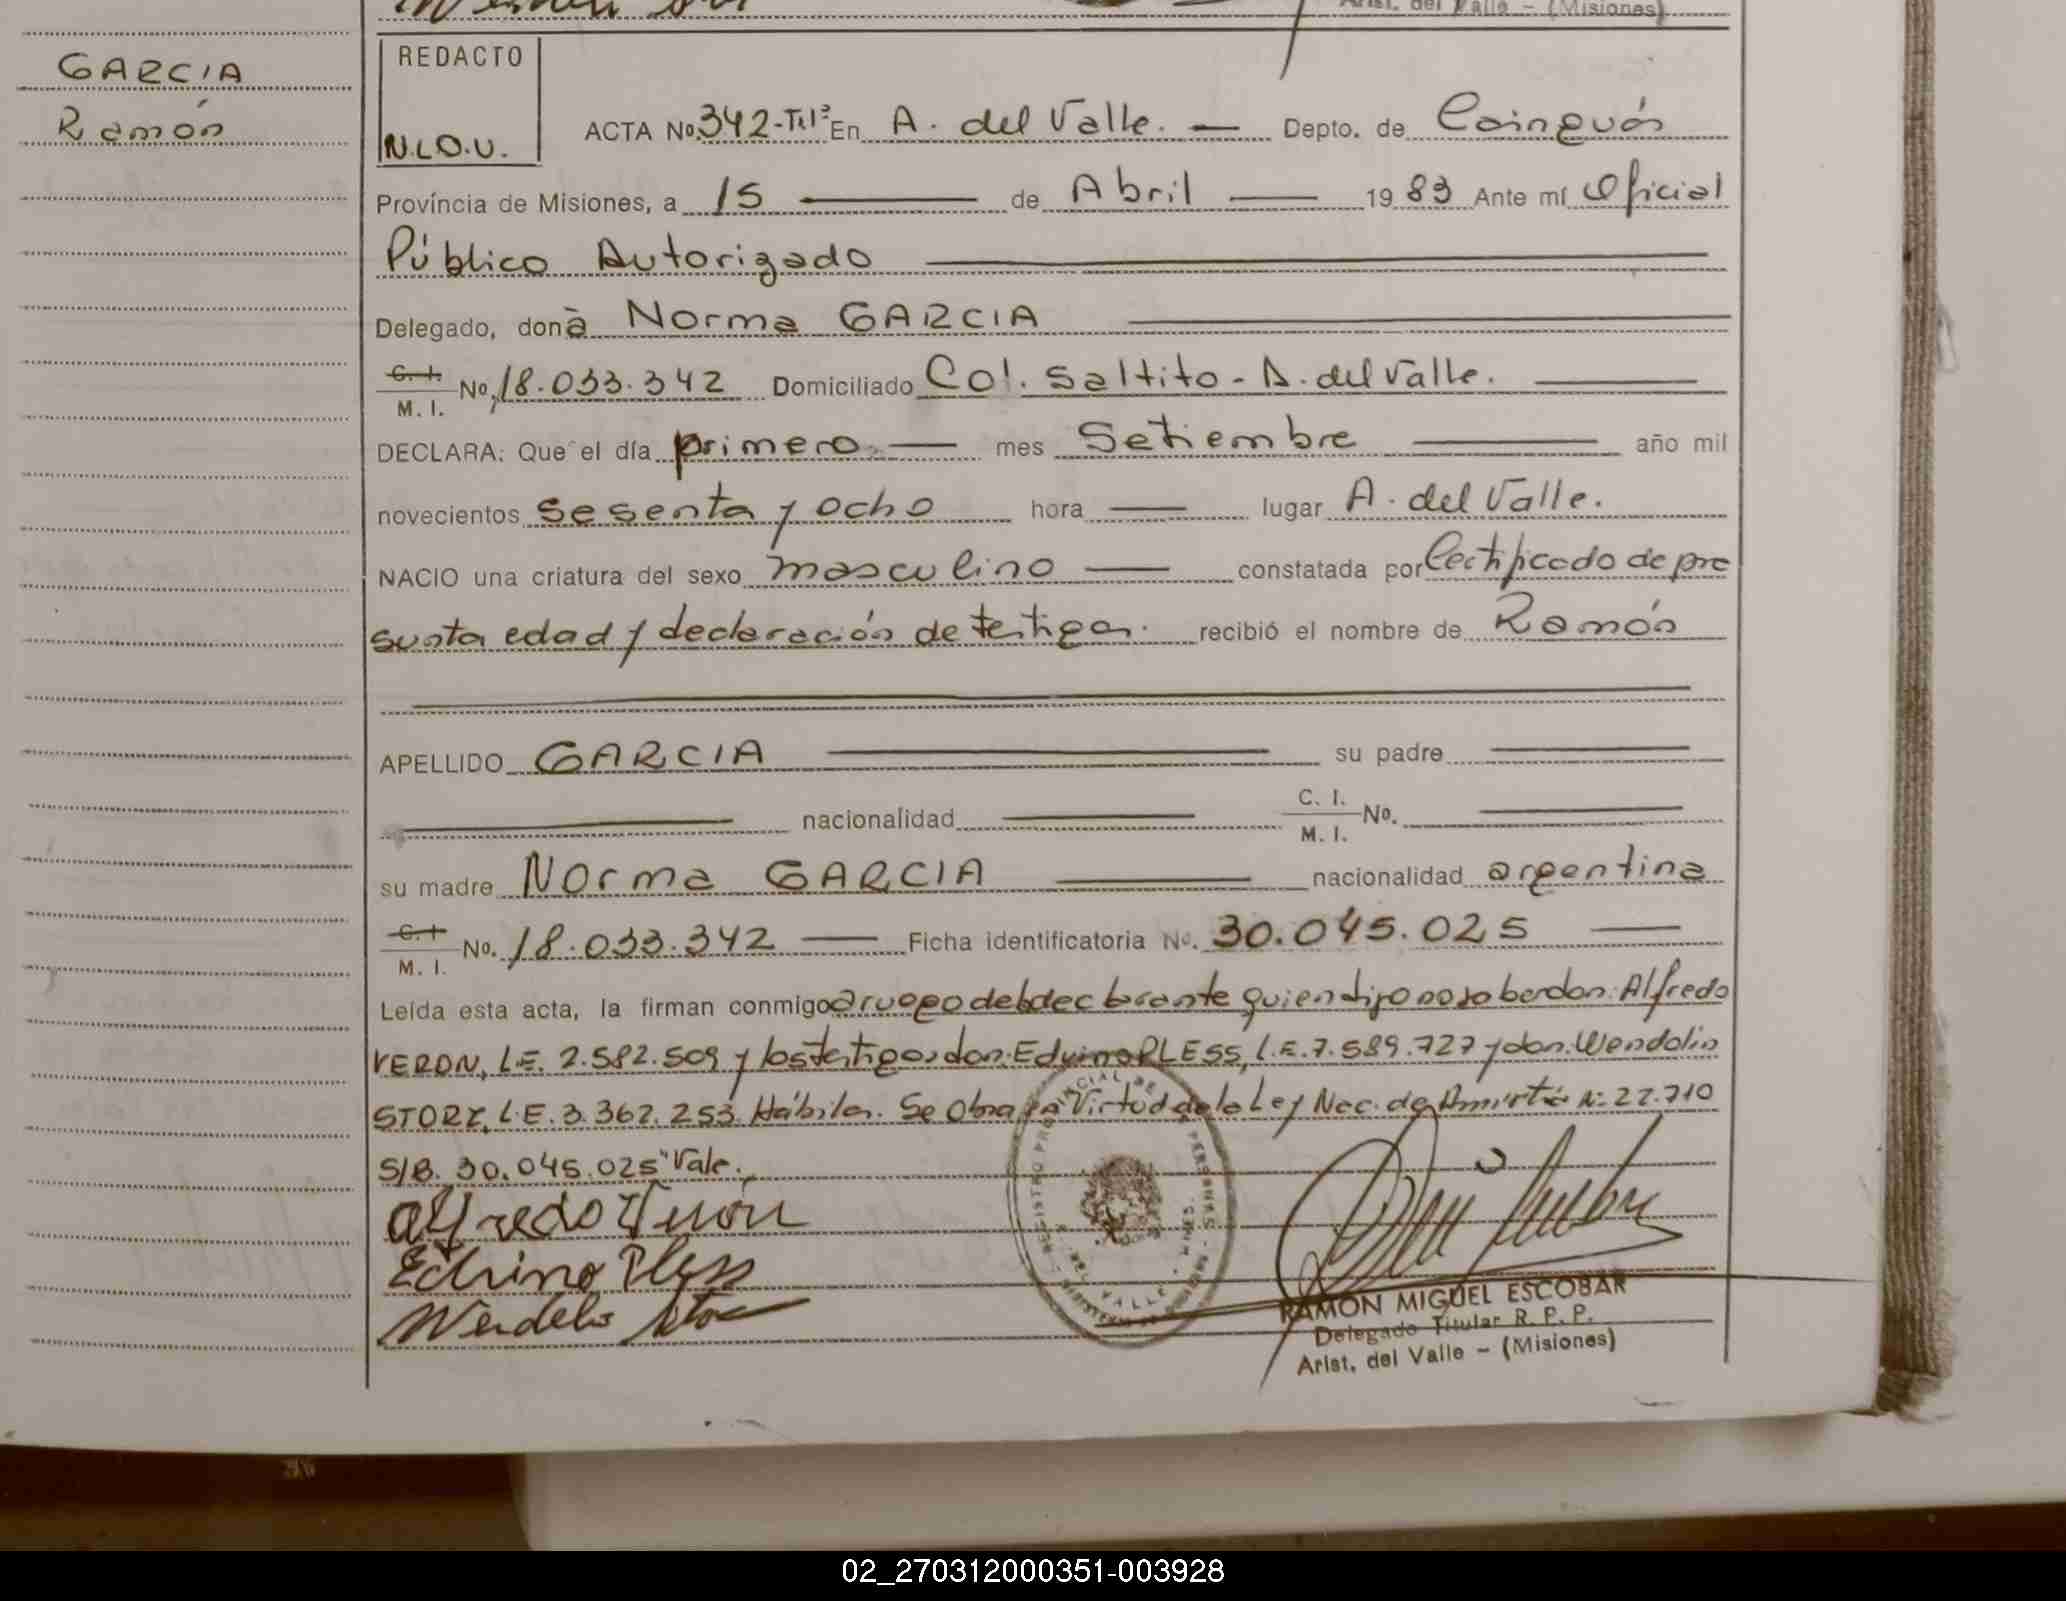 Arist. del Valle - (Misiones)
GARCIA
Ramón
REDACTO
N.L.O.U.
ACTA No. 342-Tº1º En A. del Valle. — Depto. de Cainguás
Província de Misiones, a 15 — de Abril — 19 83 Ante mí Oficial
Público Autorizado
Delegado, donã Norma GARCIA
C. I. M. I. No. 18.033.342 Domiciliado Col. Saltito - A. del Valle. —
DECLARA: Que el día primero — mes Setiembre — año mil
novecientos sesenta y ocho hora — lugar A. del Valle.
NACIO una criatura del sexo masculino — constatada por Certificado de pre
sunta edad y declaración de testigos. recibió el nombre de Ramón
APELLIDO GARCIA — su padre —
— nacionalidad — C. I. M. I. No. —
su madre Norma GARCIA — nacionalidad argentina
C. I. M. I. No. 18.033.342 — Ficha identificatoria No. 30.045.025 —
Leída esta acta, la firman conmigo a ruego del declarante quien dijo no saber don: Alfredo
VERON, L.E. 2.582.509 y los testigos don: Edvino PLESS, L.E. 7.589.727 y don: Wendolin
STORZ, L.E. 3.362.253. Hábiles. Se Obra en Virtud de la Ley Nac. de Amnistía Nº 22.710
S/B. 30.045.025" Vale.
Alfredo Verón
Edvino Pless
Wendelin Storz
REGISTRO PROVINCIAL DE LAS PERSONAS - MISIONES
DEL VALLE
RAMON MIGUEL ESCOBAR
Delegado Titular R. P. P.
Arist. del Valle - (Misiones)
02_270312000351-003928